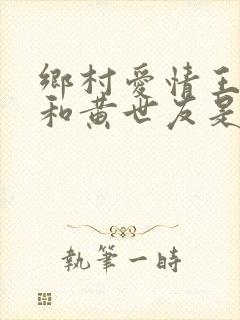 鄉村愛情王
和黃世友是
執筆一時